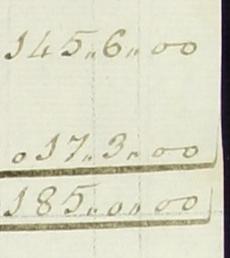 145„6„00
017„3„00
185„0„00